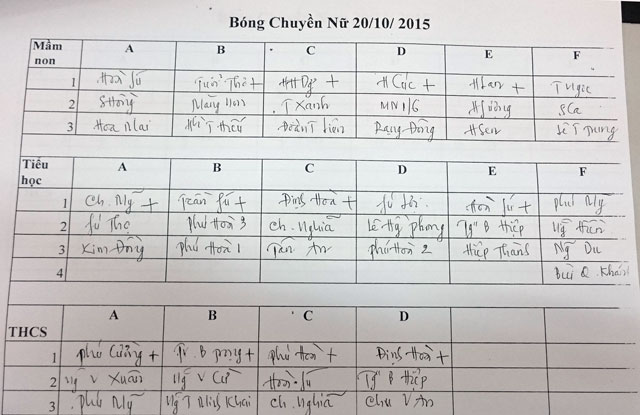 Bóng Chuyền Nữ 20/10/ 2015
Mầm non A B C D E F
1 Hoa Sứ Tuổi Thơ + HHDg + H Cúc + H Lan + T Ngọc
2 S Hồng Măng Non T Xanh MN 1/6 H Hướng S Ca
3 Hoa Mai Đoàn T Liên Rạng Đông H Sen Lê T Trung
Tiểu học A B C D E F
1 Ch. Mỹ + Trần + Định Hoà + Hoà + Phú Mỹ
2 Phú Hoà 3 Ch. Nghĩa Lê Hồng Phong Tg B Hiệp Ng Hiền
3 Kim Đồng Phú Hoà 1 Tân An Phú Hoà 2 Hiệp Thành Ng Du
4 Bùi Q. Khánh
THCS A B C D
1 Phú Cường + Tr. B Trọng + Phú Hoà + Định Hoà +
2 Ng V Xuân Ng V Cừ Tg B Hiệp
3 Phú Mỹ Ng T Minh Khai Ch. Nghĩa Chu V An